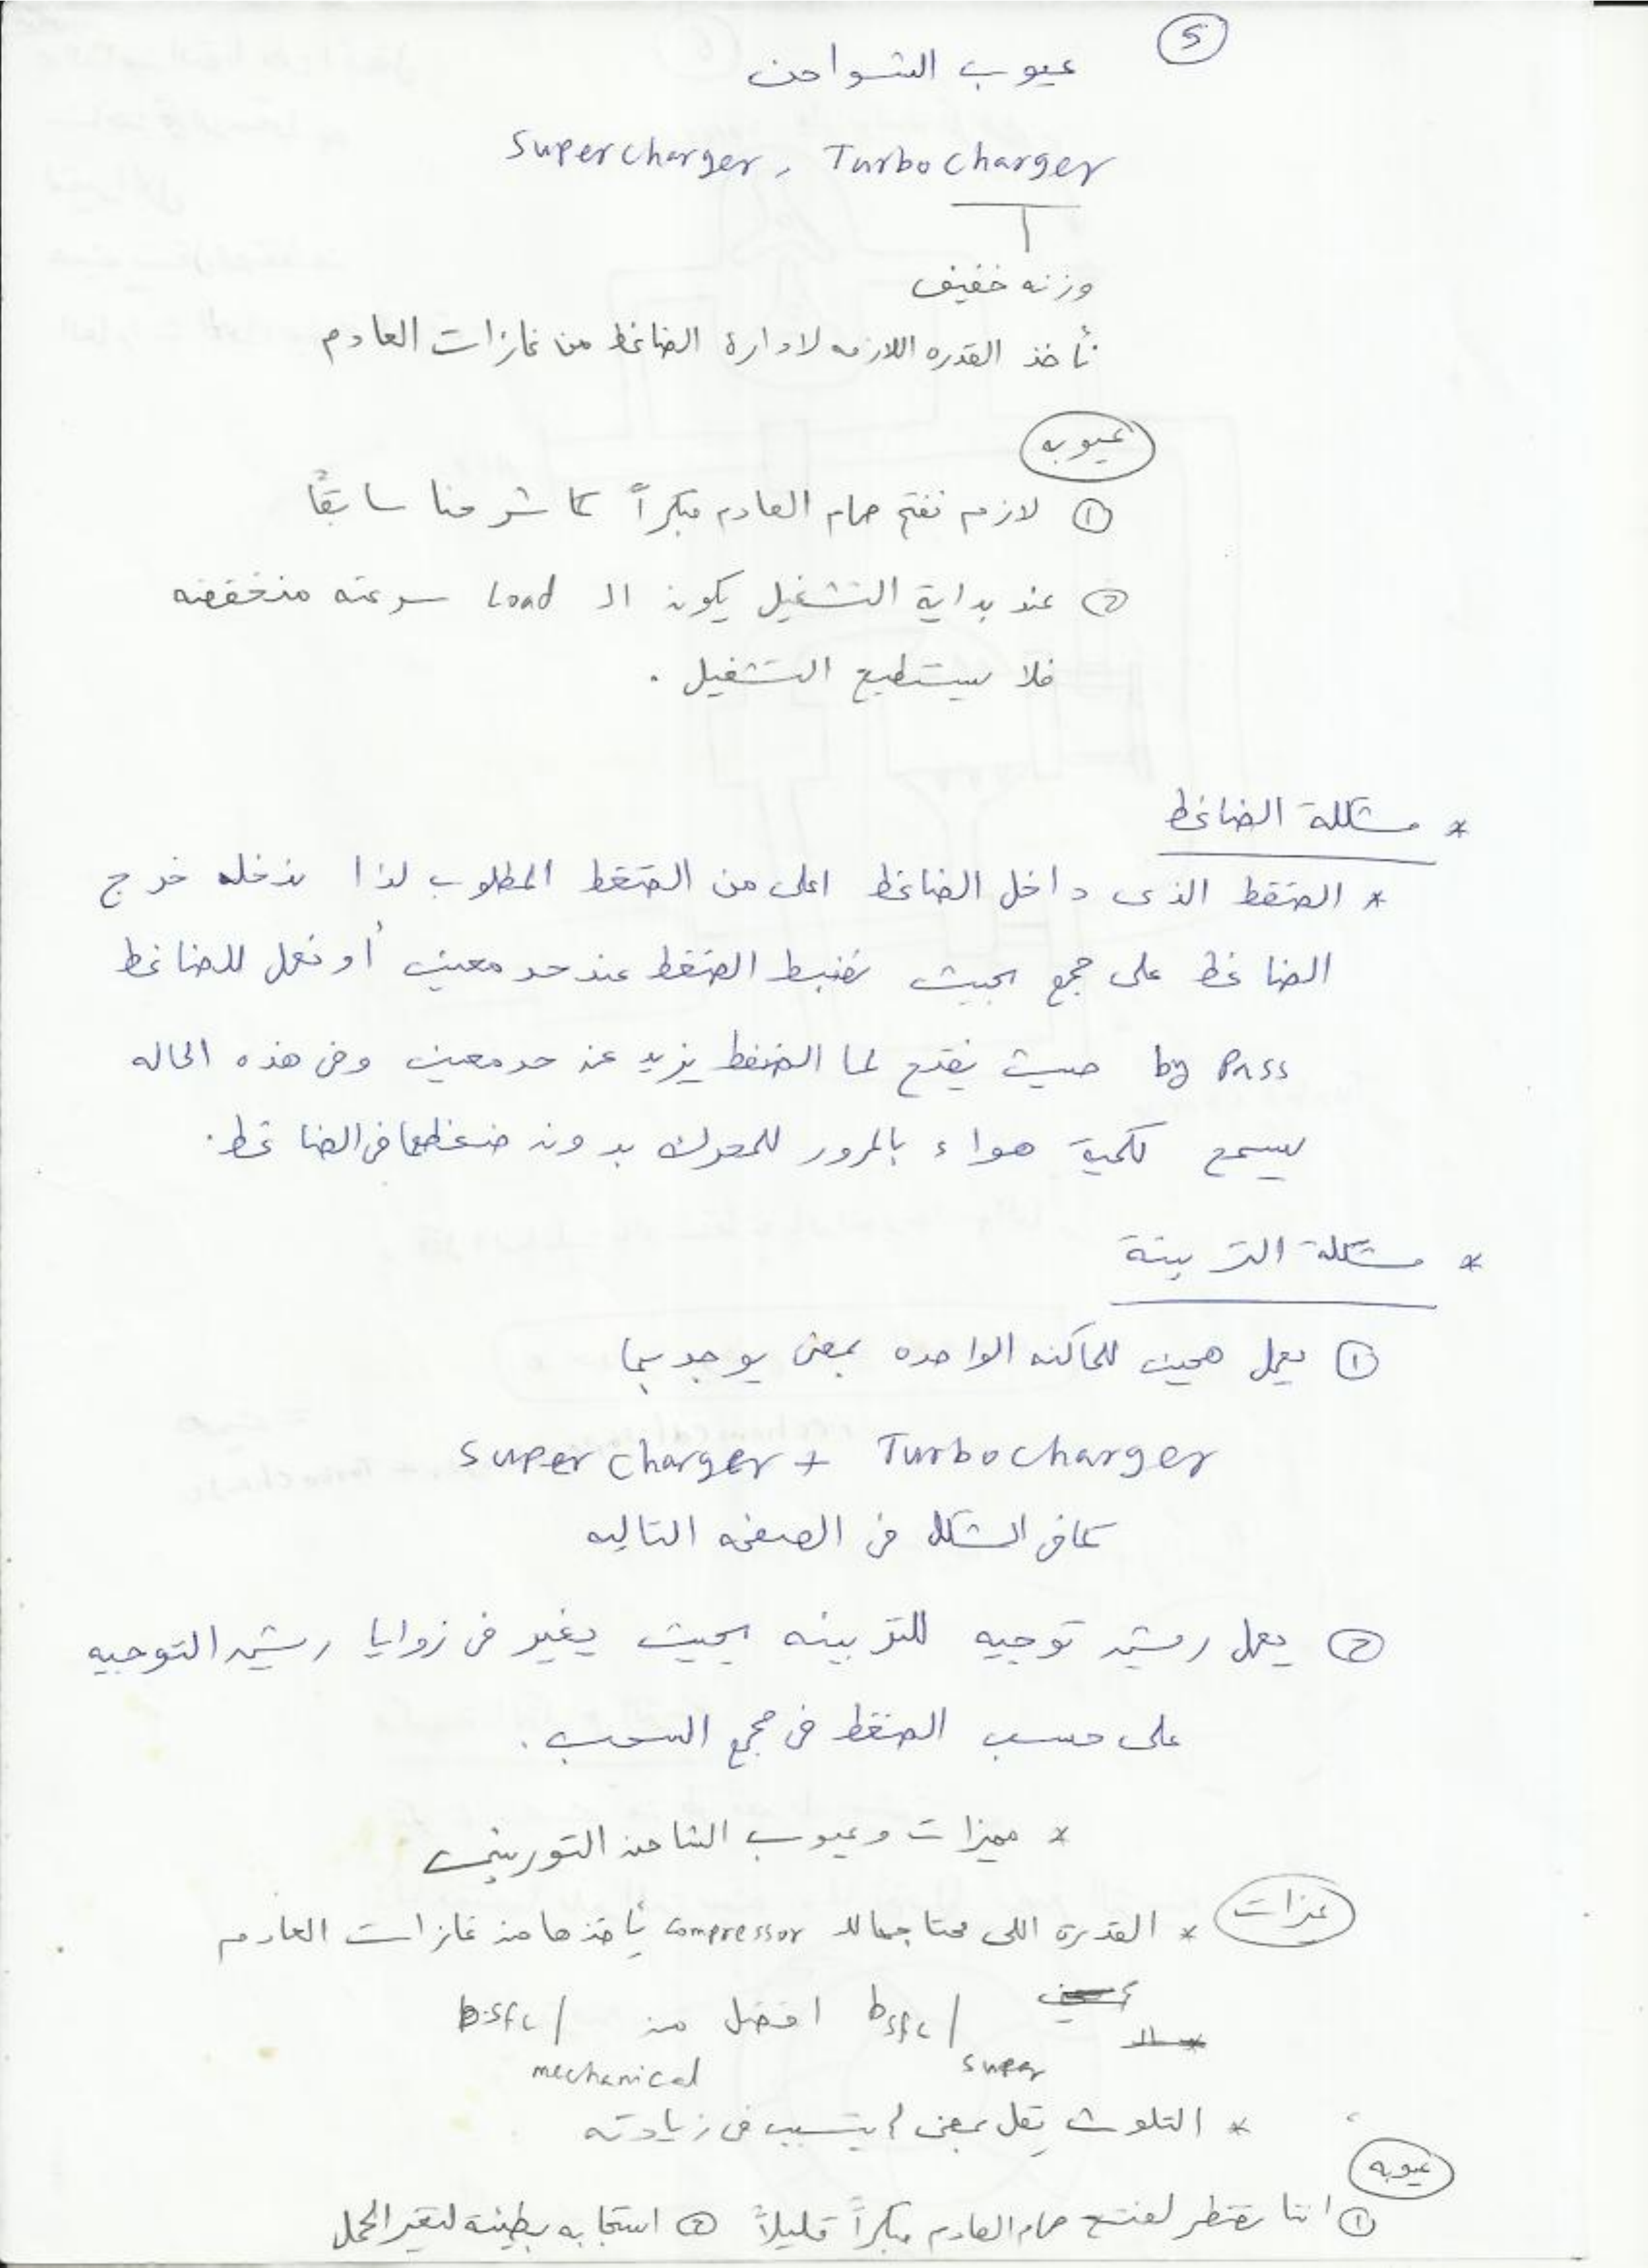 5
عيوب الشواحن
Supercharger, Turbocharger
وزنه خفيف
تأخذ القدره اللازمه لادارة الضاغط من غازات العادم
عيوبه
① لازم نفتح صمام العادم مبكراً كما شرحنا سابقاً
② عند بداية التشغيل يكون الـ Load سرعته منخفضه
فلا يستطيع التشغيل .
* مشكلة الضاغط
* الضغط الذى داخل الضاغط اعلى من الضغط المطلوب لذا ندخله خرج
الضاغط على مجمع بحيث نضبط الضغط عند حد معين أو نعمل للضاغط
by Pass حيث يفتح لما الضغط يزيد عن حد معين وفى هذه الحاله
يسمح لكمية هواء بالمرور للمحرك بدون ضغطها فى الضاغط .
* مشكلة التربينة
① يعمل هجين للماكنه الواحده بمعنى يوجد بها
Supercharger + Turbocharger
كما فى الشكل فى الصفحه التاليه
② يعمل ريش توجيه للتربينه بحيث يغير فى زوايا ريش التوجيه
على حسب الضغط فى مجمع السحب .
* مميزات وعيوب الشاحن التوربينى
* القدرة اللى محتاجها للـ Compressor يأخذها من غازات العادم
bsfc/super افضل من bsfc/mechanical
* التلوث يقل بمعنى لا يتسبب فى زيادته
عيوبه
① اننا نضطر لفتح صمام العادم مبكراً قليلاً ② استجابه بطيئة لتغير الحمل